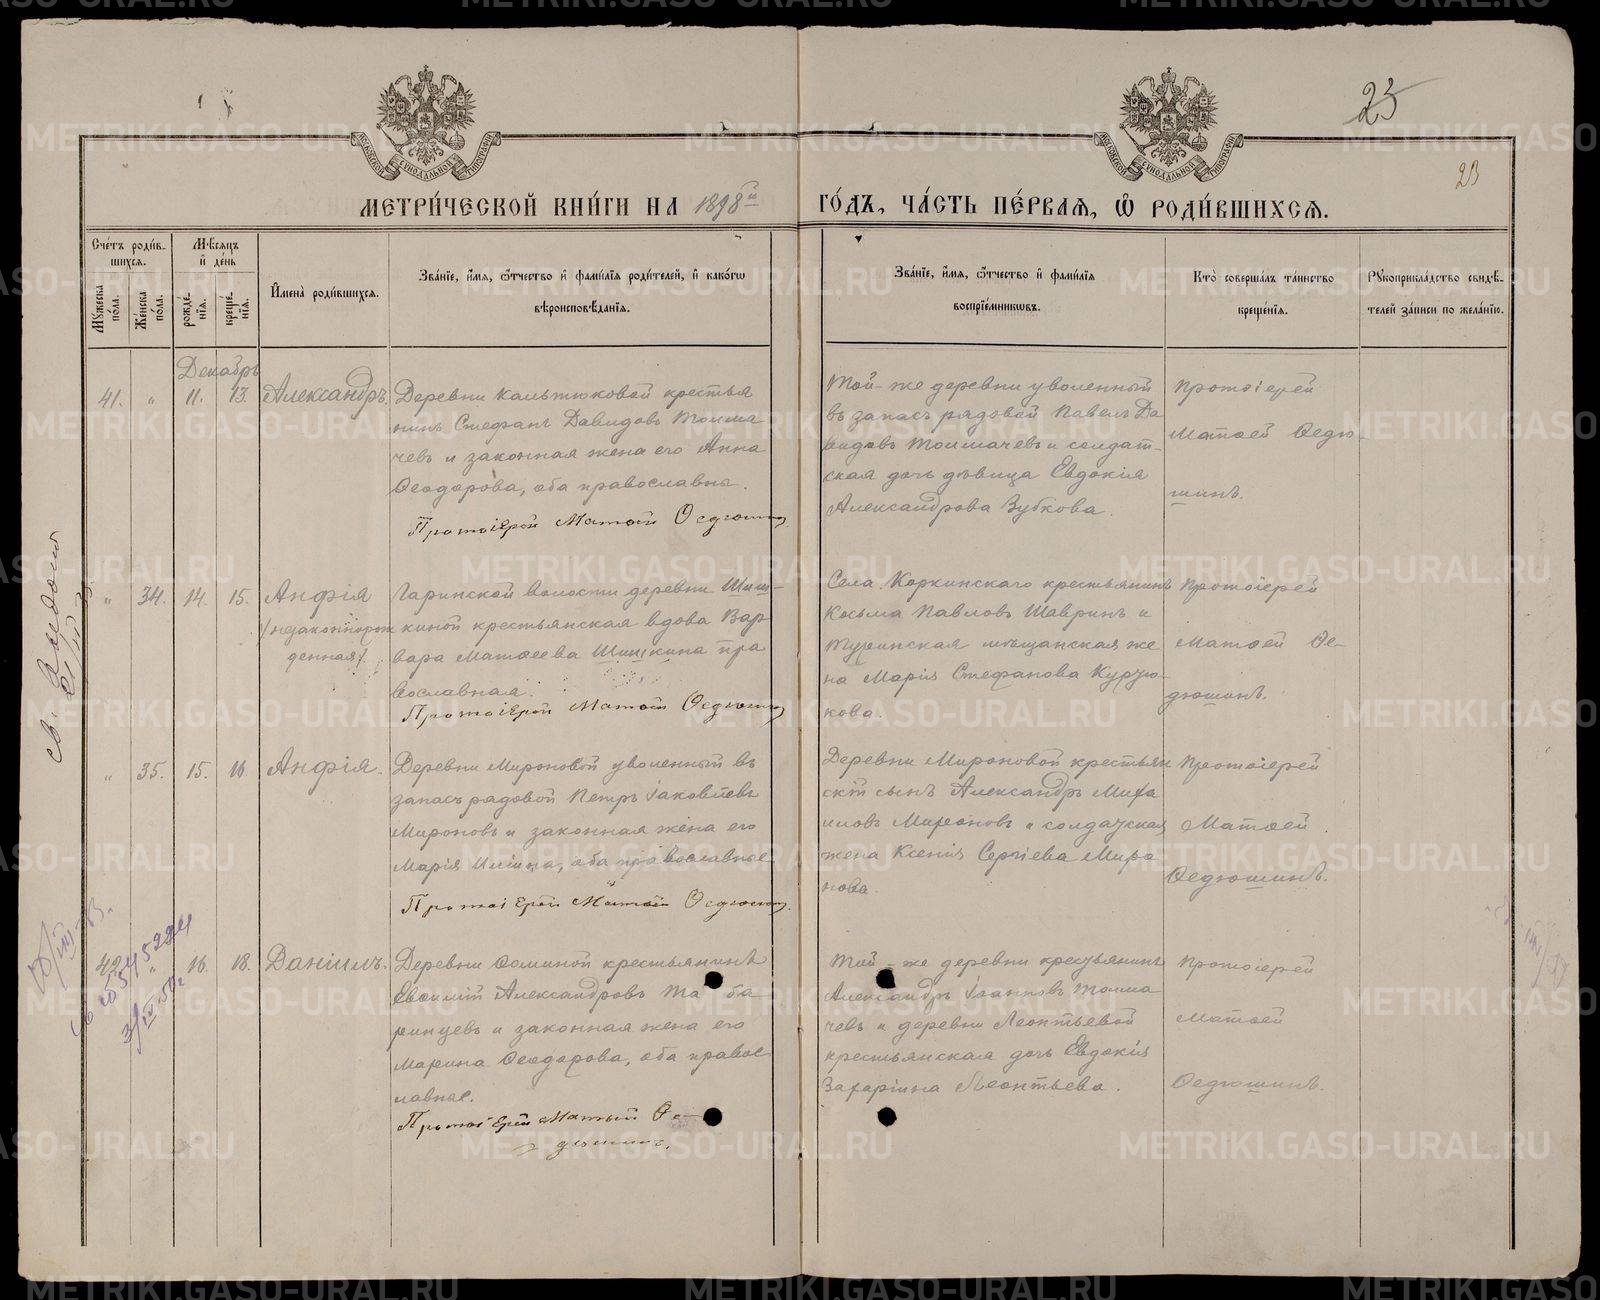 23
23
МОСКОВСКОЙ СѴНОДАЛЬНОЙ ТИПОГРАФІИ
МОСКОВСКОЙ СѴНОДАЛЬНОЙ ТИПОГРАФІИ
МЕТРИ́ЧЕСКОЙ КНИ́ГИ НА 1898й ГО́ДЪ, ЧА́СТЬ ПЕ́РВАЯ, Ѡ РОДИ́ВШИХСЯ.
Сче́тъ роди́в-
шихся.
Мѣ́сяцъ
и де́нь
Му́жеска
по́ла.
Же́нска
по́ла.
рожде́-
нія.
креще́-
нія.
Имена̀ роди́вшихся.
Зва́ніе, и́мя, ѻ҆́тчество и фами́лія роди́телей, и како́гѡ
вѣроисповѣ́данія.
Зва́ніе, и́мя, ѻ҆́тчество и фами́лія
воспріе́мникѡвъ.
Кто̀ соверша́лъ та́инство
креще́нія.
Рукоприкла́дство свидѣ́-
телей за́писи по жела́нію.
Декабрь
41. „ 11. 13. Александръ.
Деревни Калтюковой крестья
нинъ Стефанъ Давидовъ Толма
чевъ и законная жена его Анна
Ѳеодорова, оба православны.
Протоіерей Матѳій Ѳедюшинъ
Той-же деревни уволенный
въ запасъ рядовой Павелъ Да
видовъ Толмачевъ и солдат-
ская дочь дѣвица Евдокія
Александрова Зубкова.
Протоіерей
Матѳей Ѳедю-
шинъ.
„ 34. 14. 15. Анфія
/незаконнорож
денная/.
Гаринской волости деревни Шиш-
киной крестьянская вдова Вар
вара Матѳеева Шишкина пра
вославная.
Протоіерей Матѳій Ѳедюшинъ
Села Коркинскаго крестьянинъ
Косьма Павловъ Шавринъ и
Туринская мѣщанская же
на Марія Стефанова
кова.
Протоіерей
Матѳей Ѳе-
дюшинъ.
„ 35. 15. 16. Анфія.
Деревни Мироновой уволенный въ
запасъ рядовой Петръ Іаковлевъ
Мироновъ и законная жена его
Марія Иліина, оба православные
Протоіерей Матѳій Ѳедюшинъ.
Деревни Мироновой крестьян
скій сынъ Александръ Миха
иловъ Мироновъ и солдатская
жена Ксенія Сергіева Миро
нова.
Протоіерей
Матѳей
Ѳедюшинъ.
42. „ 16. 18. Даніилъ.
Деревни Ѳоминой крестьянинъ
Евѳимій Александровъ Та ба
ринцевъ и законная жена его
Марина Ѳеодорова, оба правос
лавные.
Протоіерей Матѳій Ѳе-
дюшинъ.
Той-же деревни крестьянинъ
Александръ Іоанновъ Толма
чевъ и деревни Леонтьевой
крестьянская дочь Евдокія
Захаріина Леонтьева.
Протоіерей
Матѳей
Ѳедюшинъ.
METRIKI.GASO-URAL.RU